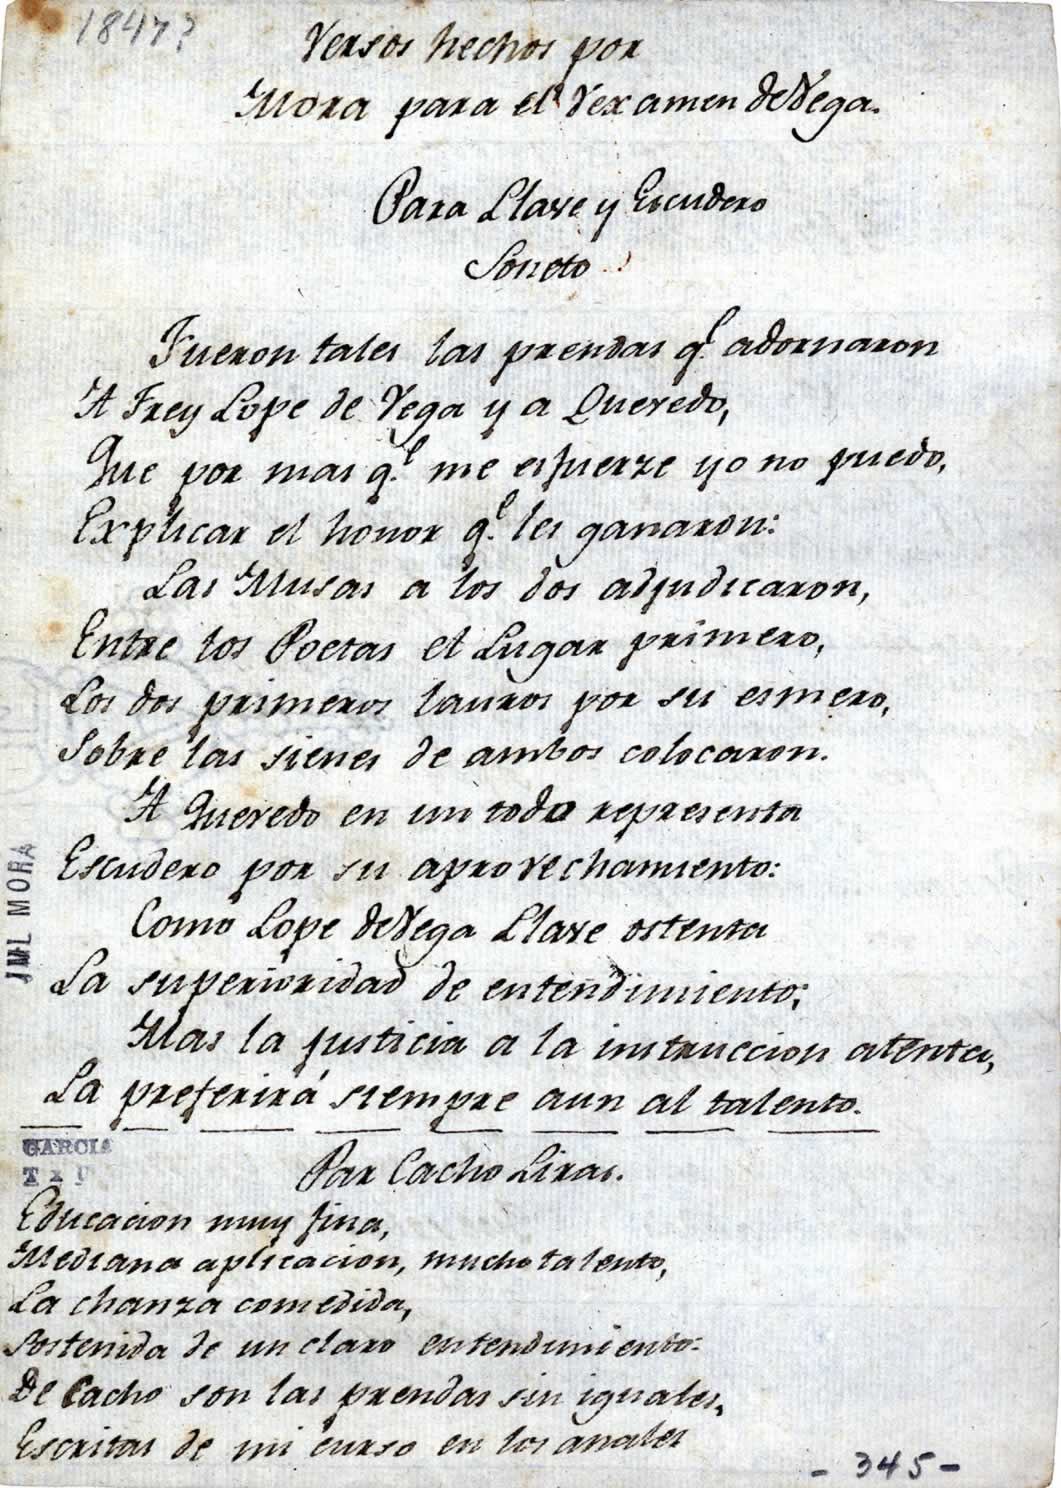 1847?
Versos hechos por
Mora para el Vexamen de Vega.
Para Llave y Escudero
Soneto
Fueron tales las prendas q.e adornaron
A Frey Lope de Vega y a Quevedo,
Que por mas q.e me esfuerze yo no puedo,
Explicar el honor q.e les ganaron:
Las Musas a los dos adjudicaron,
Entre los Poetas el Lugar primero,
Los dos primeros lauros por su esmero,
Sobre las sienes de ambos colocaron.
A Quevedo en un todo representa
Escudero por su aprovechamiento:
Como Lope de Vega Llave ostenta
La superioridad de entendimiento;
Mas la justicia a la instruccion atenta,
La preferirá siempre aun al talento.
JML MORA
GARCIA
Par Cacho Liras.
Educacion muy fina,
Mediana aplicacion, mucho talento,
La chanza comedida,
Sostenida de un claro entendimiento:
De Cacho son las prendas sin iguales,
Escritas de mi curso en los anales
- 345 -